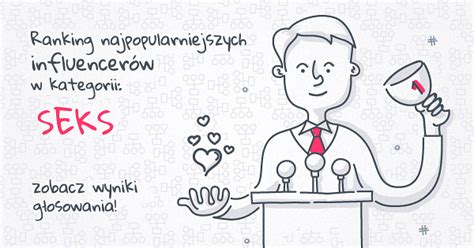 Ranking najpopularniejszych
influencerów
w kategorii:
SEKS
zobacz wyniki
głosowania!